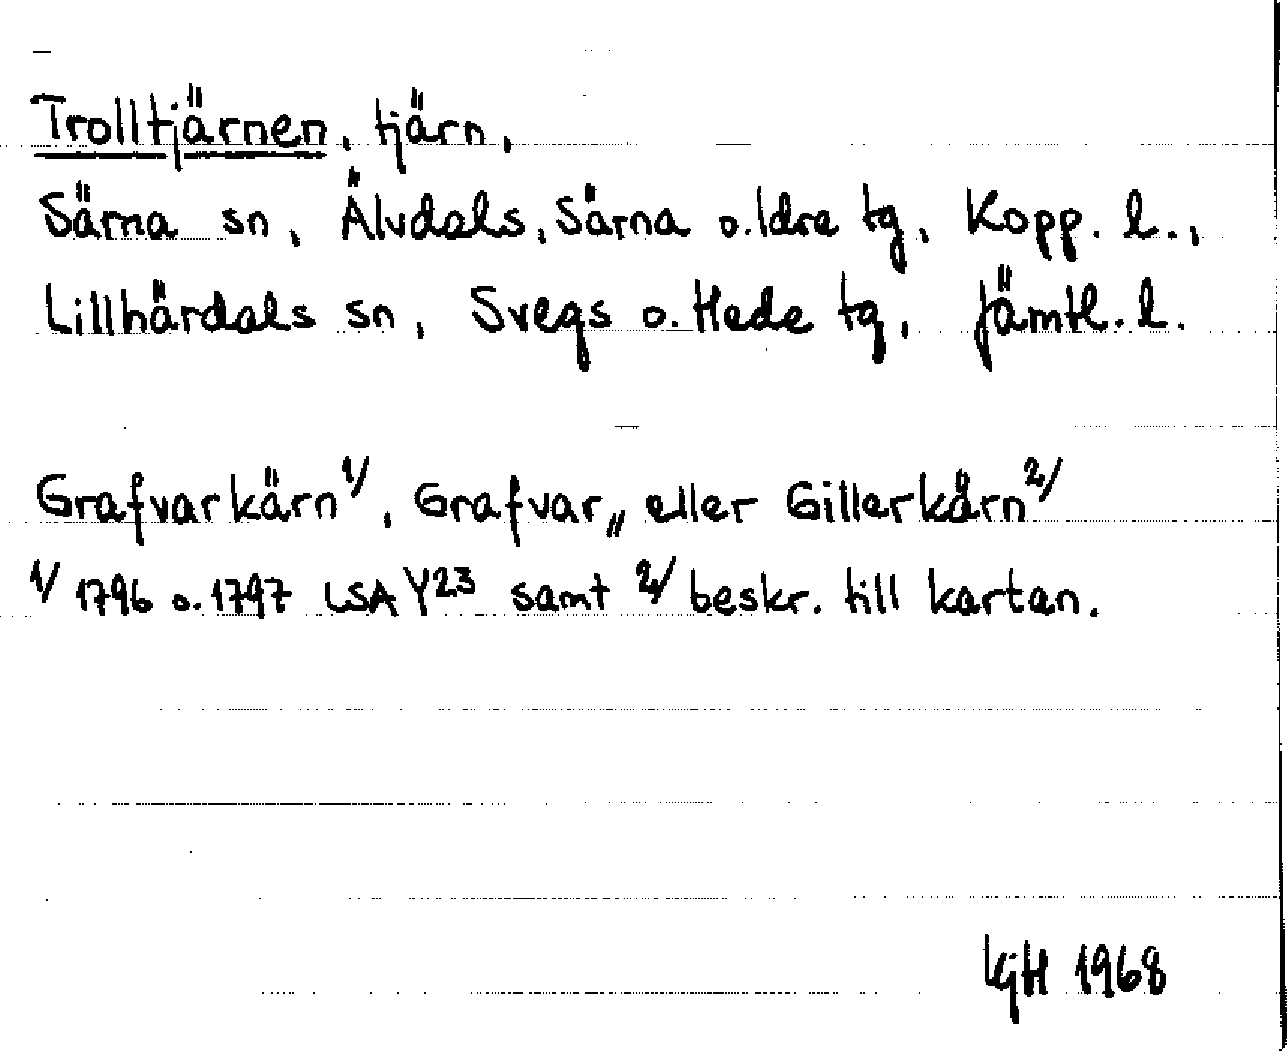 Trolltjärnen, tjärn,
Särna sn, Älvdals, Särna o. Idre tg, Kopp. l.,
Lillhärdals sn, Svegs o. Hede tg, Jämtl. l.
Grafvarkärn 1/, Grafvar„ eller Gillerkärn 2/
1/ 1796 o. 1797 LSA Y23 samt 2/ beskr. till kartan.
LGH 1968